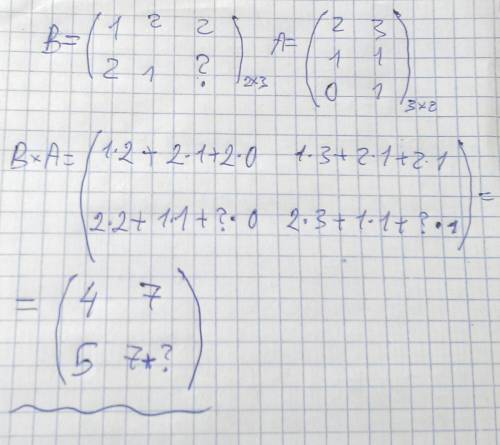 B = ( 1 2 2 ) A = ( 2 3 )
( 2 1 ? )2×3 ( 1 1 )
( 0 1 )3×2
B×A = ( 1·2 + 2·1 + 2·0 1·3 + 2·1 + 2·1 ) =
( 2·2 + 1·1 + ?·0 2·3 + 1·1 + ?·1 )
= ( 4 7 )
( 5 7+? )